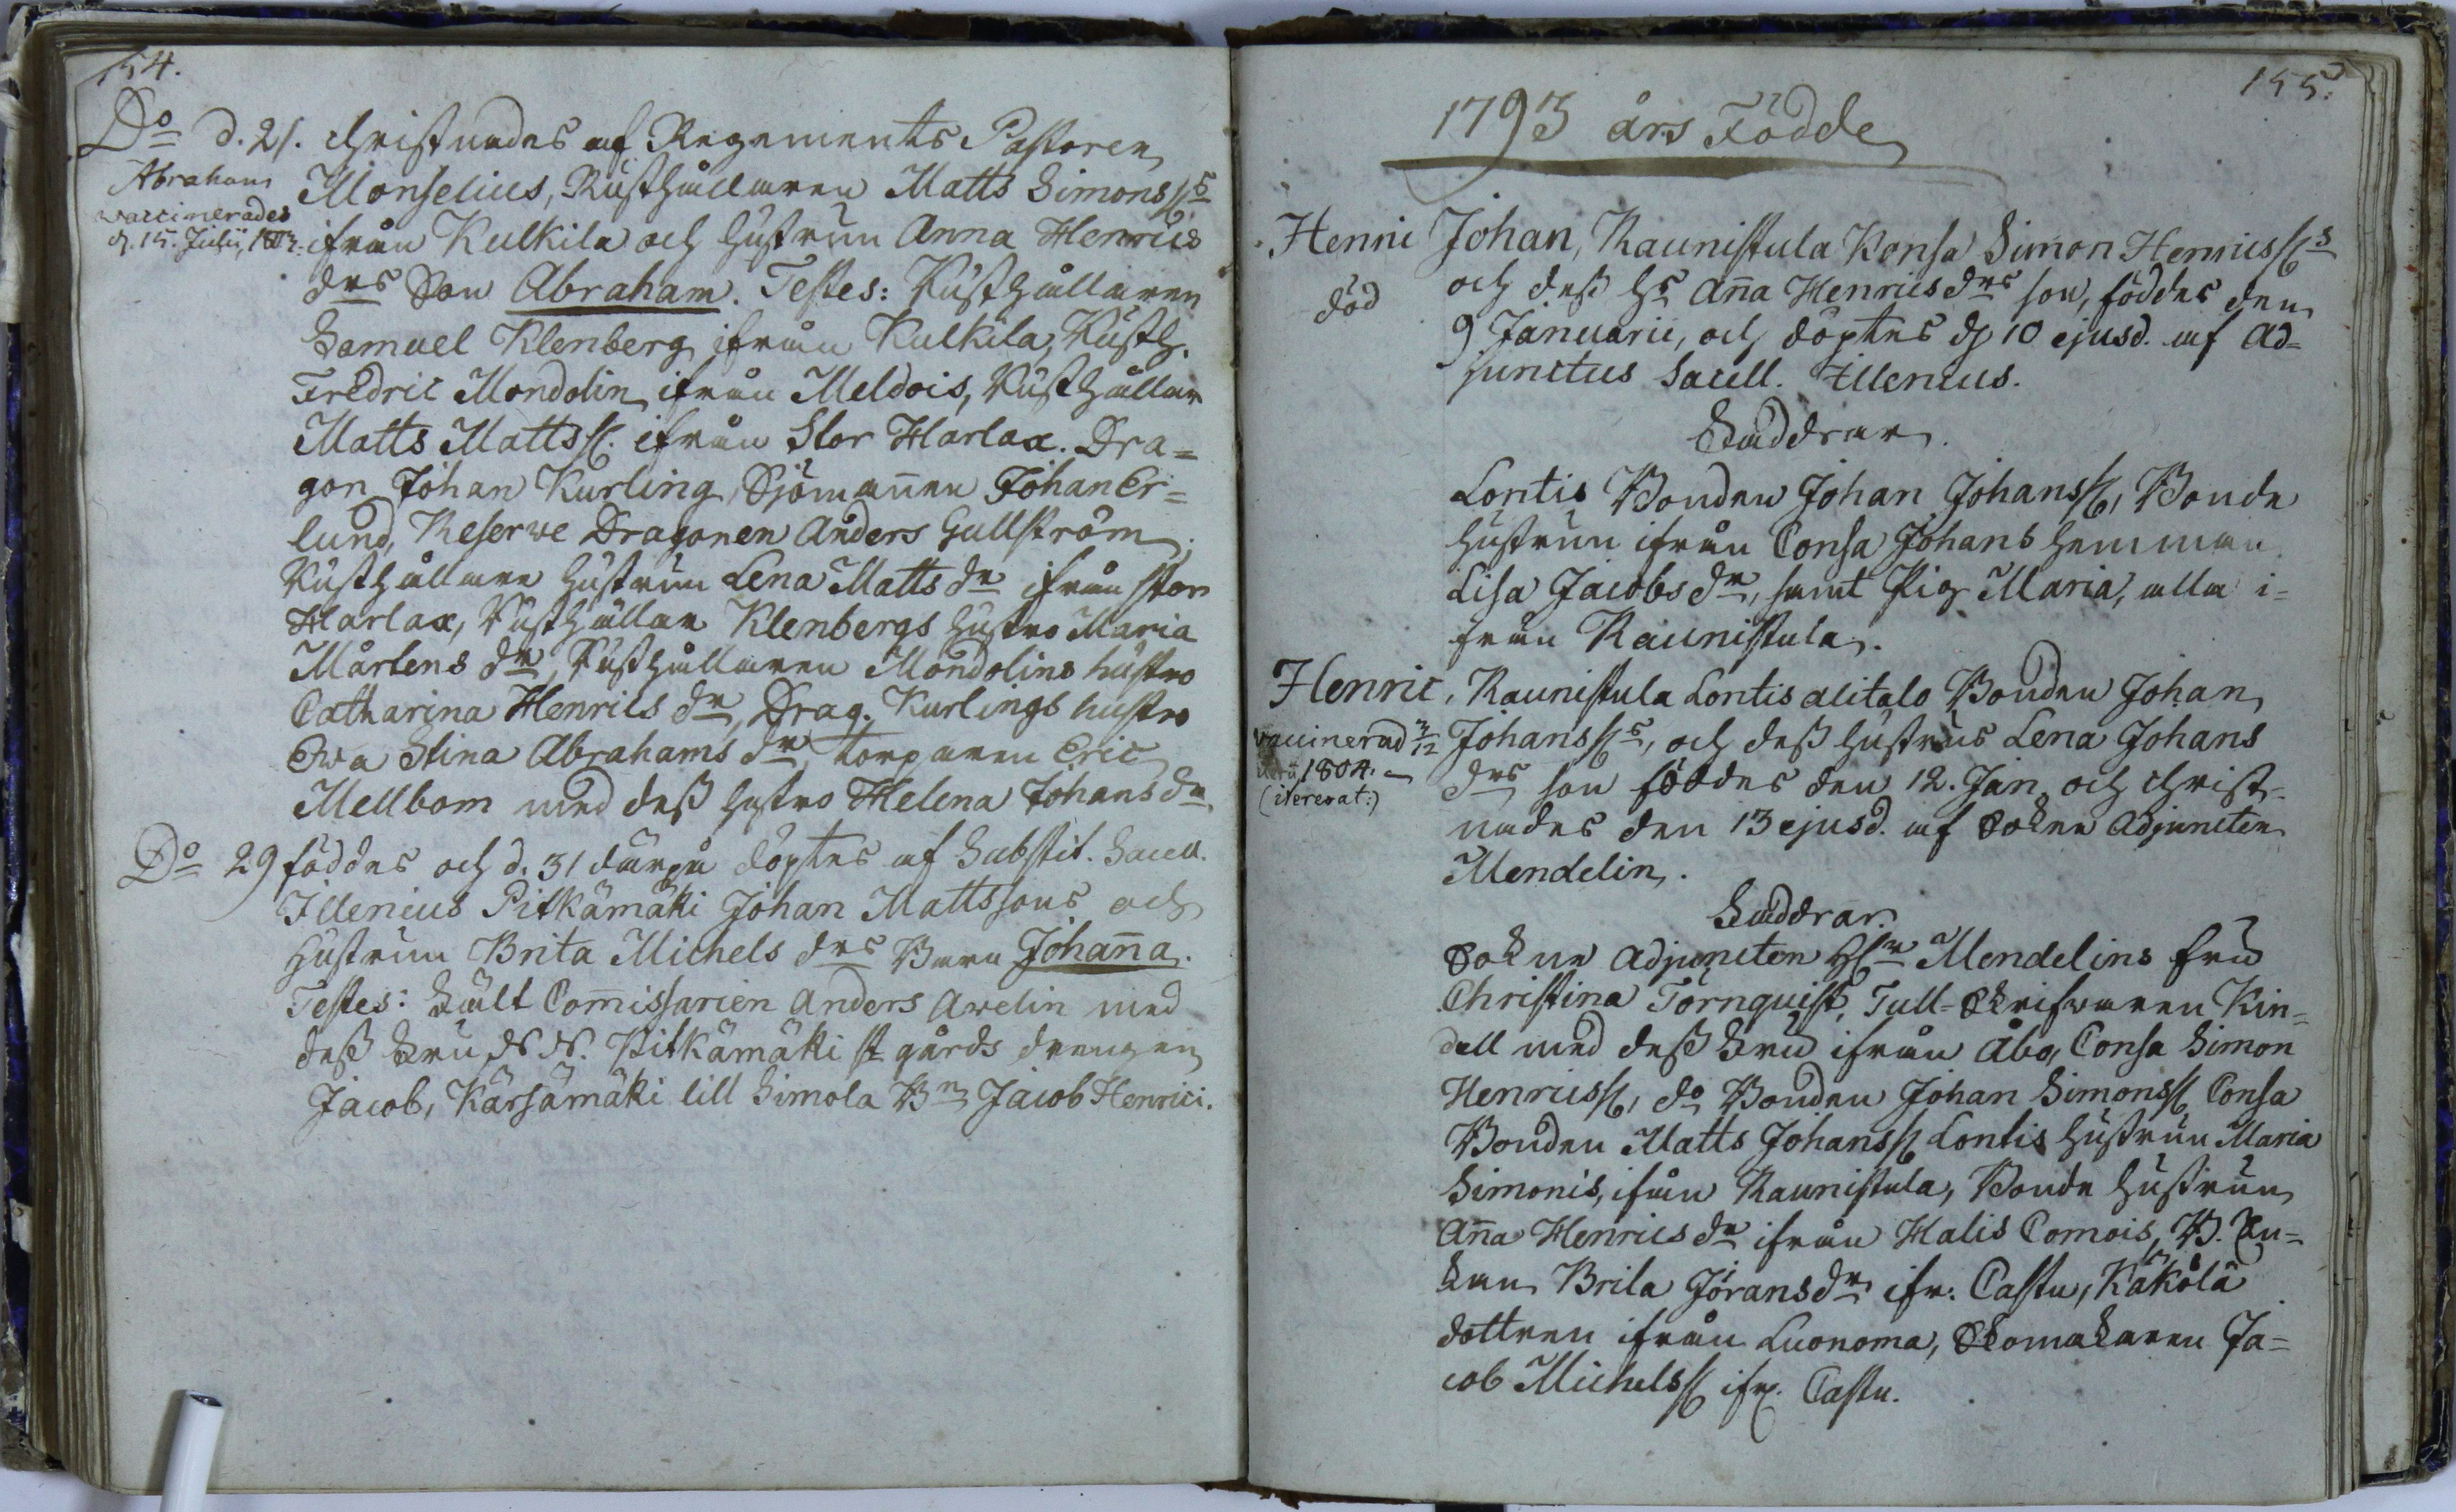 154.
Do d. 21. christnades af Regements Pastoren
Abraham
vaccinerades
d. 15. Julii,
Monselius, Rusthållaren Matts Simonss:s
ifrån Kulkila och hustrun Anna Henrics
drs Son Abraham. Testes: Rusthållaren
Samuel Klenberg ifrån Kulkila, Rusth.
Fredric Mondolin ifrån Meldois, Rusthållar
Matts Mattss. ifrån Stor Harlax. Dra=
gon Johan Kurling, Sjömannen Johan Er=
lund, Reserve Dragonen Anders Gullström,
Rusthållare hustrun Lena Matts dr ifrån stor
Harlax, Rusthållar Klenbergs hustro Maria
Mårtens dr, Rusthållaren Mondolins hustro
Catharina Henrics dr, Drag. Kurlings hustro
Ewa Stina Abrahams dr, torparen Eric
Mellbom med dess hustro Helena Johans dr.
Do 29 föddes och d. 31 därpå döptes af Substit. Sacell.
Illenius Pitkämäki Johan Mattssons och
hustrun Brita Michels drs Barn Johanna.
Testes: Fält Commissarien Anders Avelin med
dess Fru N. N. Pitkämäki st gårds drengen
Jacob, Kärsämäki lill Simola Bn Jacob Henrici.
155.
1793 års Födde
Henric Johan, Raunistula Konsa Simon Henricss:s
död
och dess hs Anna Henrics drs son, föddes den
9 Januarii, och döptes d 10 ejusd. af Ad=
junctus Sacell. Illenius.
Faddrar.
Lontis Bonden Johan Johanss, Bonde
hustrun ifrån Consa Johans hemman
Lisa Jacobs dr, samt Pig Maria, alla i=
från Raunistula.
Henric, Raunistula Lontis alitalo Bonden Johan
vaccinerad
1804.
(iterevat:)
Johanss:s, och dess hustrus Lena Johans
drs son föddes den 12. Jan. och christ=
nades den 13 ejusd. af Sokne Adjuncten
Mendelin.
Faddrar.
Sokne Adjuncten Hr Mendelins fru
Christina Törnquist, Tull-Skrifvaren Kin=
dell med dess Fru ifrån Åbo, Consa Simon
Henricss, do Bonden Johan Simonss Consa
Bonden Matts Johanss Lontis hustrun Maria
Simonis, ifrån Raunistula, Bonde hustrun
Anna Henrics dr ifrån Halis Comois, B. En=
kan Brita Jörans dr ifr. Castu, Käkölä
dottren ifrån Luonoma, Skomakaren Ja=
cob Michelss ifr. Castu.